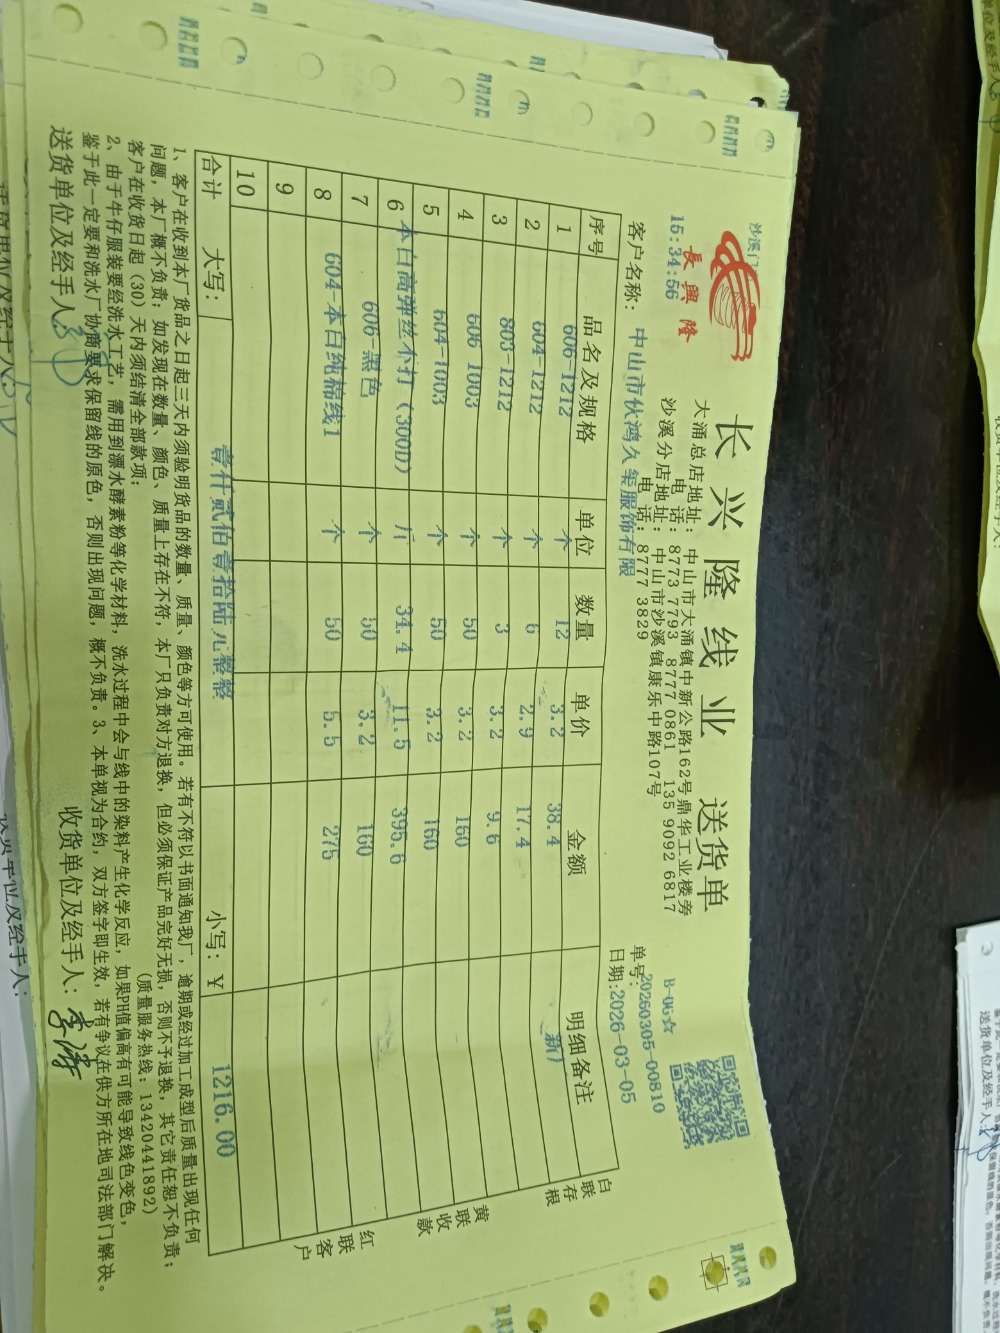 长兴隆线业 送货单
沙溪门
長興隆
15:34:56
大涌总店地址: 中山市大涌镇中新公路162号鼎华工业楼旁
电 话: 8773 7793 8777 0861 135 9092 6817
沙溪分店地址: 中山市沙溪镇康乐中路107号
电 话: 8777 3829
单号:20260305-00810
客户名称: 中山市伙鸿久 服饰有限
日期:2026-03-05
序号 品名及规格 单位 数量 单价 金额 明细备注
1 606-1212 个 12 3.2 38.4 新厂
2 604-1212 个 6 2.9 17.4
3 803-1212 个 3 3.2 9.6
4 606 1003 个 50 3.2 160
5 604-1003 个 50 3.2 160
6 本白高弹丝不打(300D) 斤 34.4 11.5 395.6
7 606-黑色 个 50 3.2 160
8 604-本白纯棉线1 个 50 5.5 275
9
10
合计 大写: 壹仟贰佰壹拾陆元整整 小写: ¥ 1216.00
白联存根
黄联收款
红联客户
1、客户在收到本厂货品之日起三天内须验明货品的数量、质量、颜色等方可使用。若有不符以书面通知我厂, 逾期或经过加工成型后质量出现任何
问题, 本厂概不负责; 如发现在数量、颜色、质量上存在不符, 本厂只负责对方退换, 但必须保证产品完好无损, 否则不予退换, 其它责任恕不负责;
客户在收货日起 (30) 天内须结清全部款项; (质量服务热线: 13420441892)
2、由于牛仔服装要经洗水工艺, 需用到漂水酵素粉等化学材料, 洗水过程中会与线中的染料产生化学反应, 如果PH值偏高有可能导致线色变色,
鉴于此一定要和洗水厂协商要求保留线的原色, 否则出现问题, 概不负责。3、本单视为合约, 双方签字即生效, 若有争议在供方所在地司法部门解决。
送货单位及经手人: 收货单位及经手人: 李涛